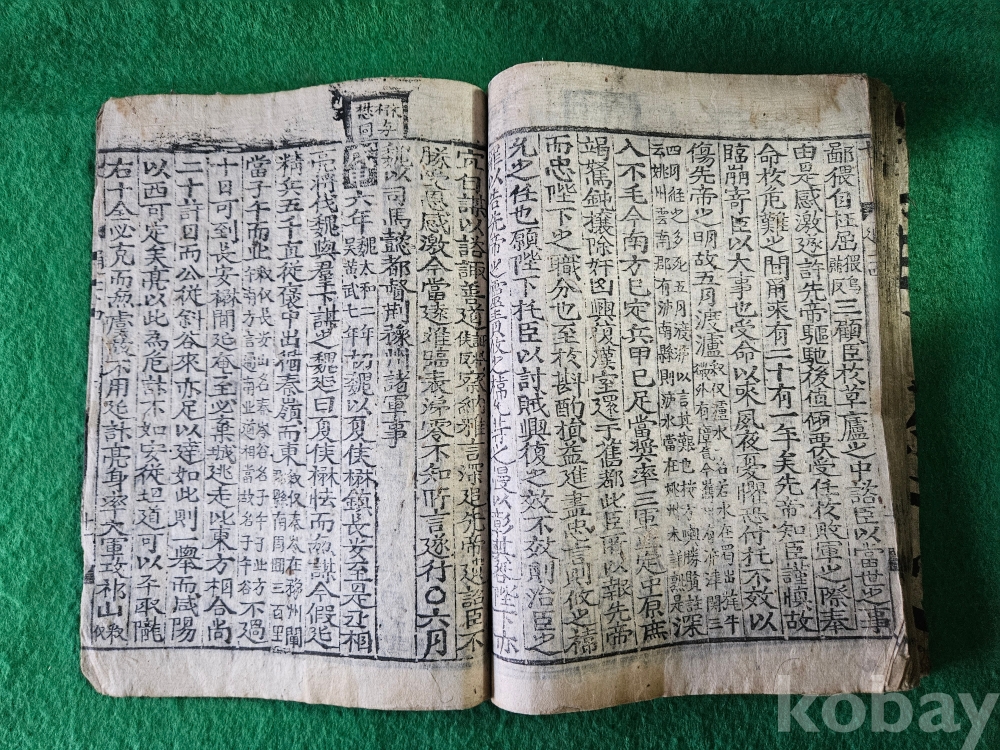 鄙猥自枉屈三顧臣於草廬之中諮臣以當世之事
由是感激遂許先帝驅馳後値傾覆受任於敗軍之際奉
命於危難之間爾來有二十有一年矣先帝知臣謹慎故
臨崩寄臣以大事也受命以來夙夜憂懼恐付托不效以
傷先帝之明故五月渡瀘深
入不毛今南方已定兵甲已足當奬率三軍北定中原庶
竭駑鈍攘除奸凶興復漢室還于舊都此臣所以報先帝
而忠陛下之職分也至於斟酌損益進盡忠言則攸之褘
允之任也願陛下托臣以討賊興復之效不效則治臣之
罪以告先帝之靈責攸之褘允等之慢以彰其咎陛下亦
宜自謀以諮諏善道察納雅言深追先帝遺詔臣不
勝受恩感激今當遠離臨表涕零不知所言遂行○六月
魏以司馬懿都督荊豫州諸軍事
六年魏太和二年吳黃武七年初魏以夏侯楙鎮長安至是丞相
亮將伐魏與羣下謀之魏延曰夏侯楙怯而無謀今假延
精兵五千直從褒中出循秦嶺而東
當子午而北不過
十日可到長安楙聞延奄至必棄城逃走比東方相合尚
二十許日而公從斜谷來亦足以達如此則一擧而咸陽
以西可定矣亮以此爲危計不如安從坦道可以平取隴
右十全必克而無虞故不用延計亮身率大軍攻祁山
kobay